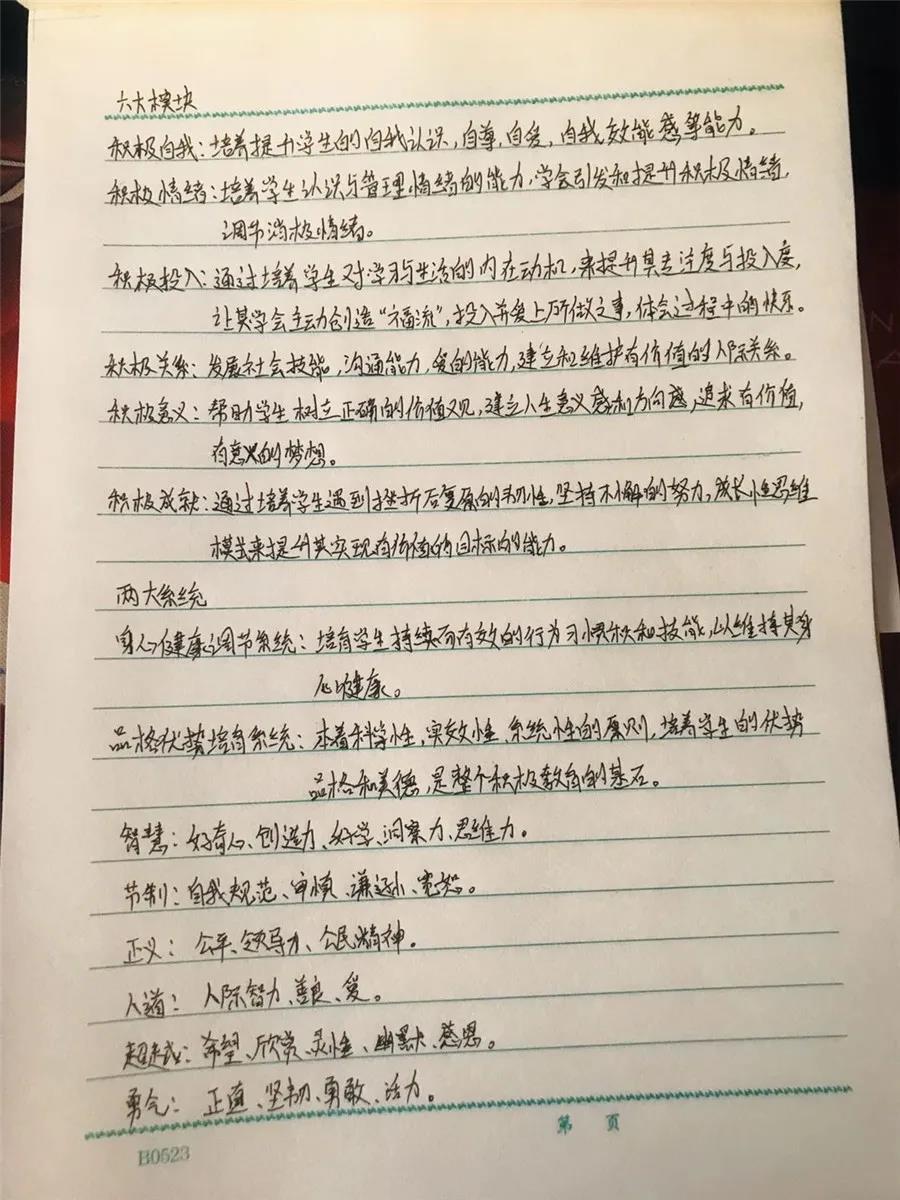 六大模块
积极自我：培养提升学生的自我认识，自尊，自爱，自我效能感等能力。
积极情绪：培养学生认识与管理情绪的能力，学会引发和提升积极情绪，
调节消极情绪。
积极投入：通过培养学生对学习与生活的内在动机，来提升其专注度与投入度，
让其学会主动创造“福流”，投入并爱上所做之事，体会过程中的快乐。
积极关系：发展社会技能，沟通能力，爱的能力，建立和维护有价值的人际关系。
积极意义：帮助学生树立正确的价值观，建立人生意义感和方向感，追求有价值，
有意义的梦想。
积极成就：通过培养学生遇到挫折后复原的韧性，坚持不懈的努力，成长性思维
模式来提升其实现有价值的目标的能力。
两大系统
身心健康调节系统：培育学生持续而有效的行为习惯和技能，以维持其身
心健康。
品格优势培育系统：本着科学性，实效性，系统性的原则，培养学生的优势
品格和美德，是整个积极教育的基石。
智慧：好奇心、创造力、好学、洞察力、思维力。
节制：自我规范、审慎、谦逊、宽恕。
正义：公平、领导力、公民精神。
人道：人际智力、善良、爱。
超越：希望、欣赏、灵性、幽默、感恩。
勇气：正直、坚韧、勇敢、活力。
第 页
B0523